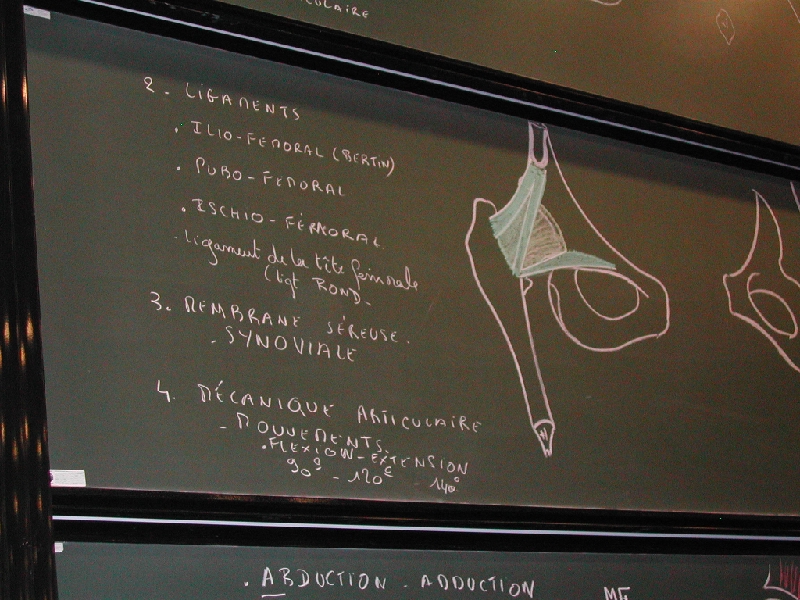 CULAIRE
2. LIGAMENTS
. ILIO-FEMORAL (BERTIN)
. PUBO-FEMORAL
. ISCHIO-FÉMORAL.
- Ligament de la tête fémorale
(ligt ROND.
3. MEMBRANE SÉREUSE.
. SYNOVIALE
4. MÉCANIQUE ARTICULAIRE
- MOUVEMENTS.
. FLEXION-EXTENSION
90° - 120° 140°
. ABDUCTION - ADDUCTION